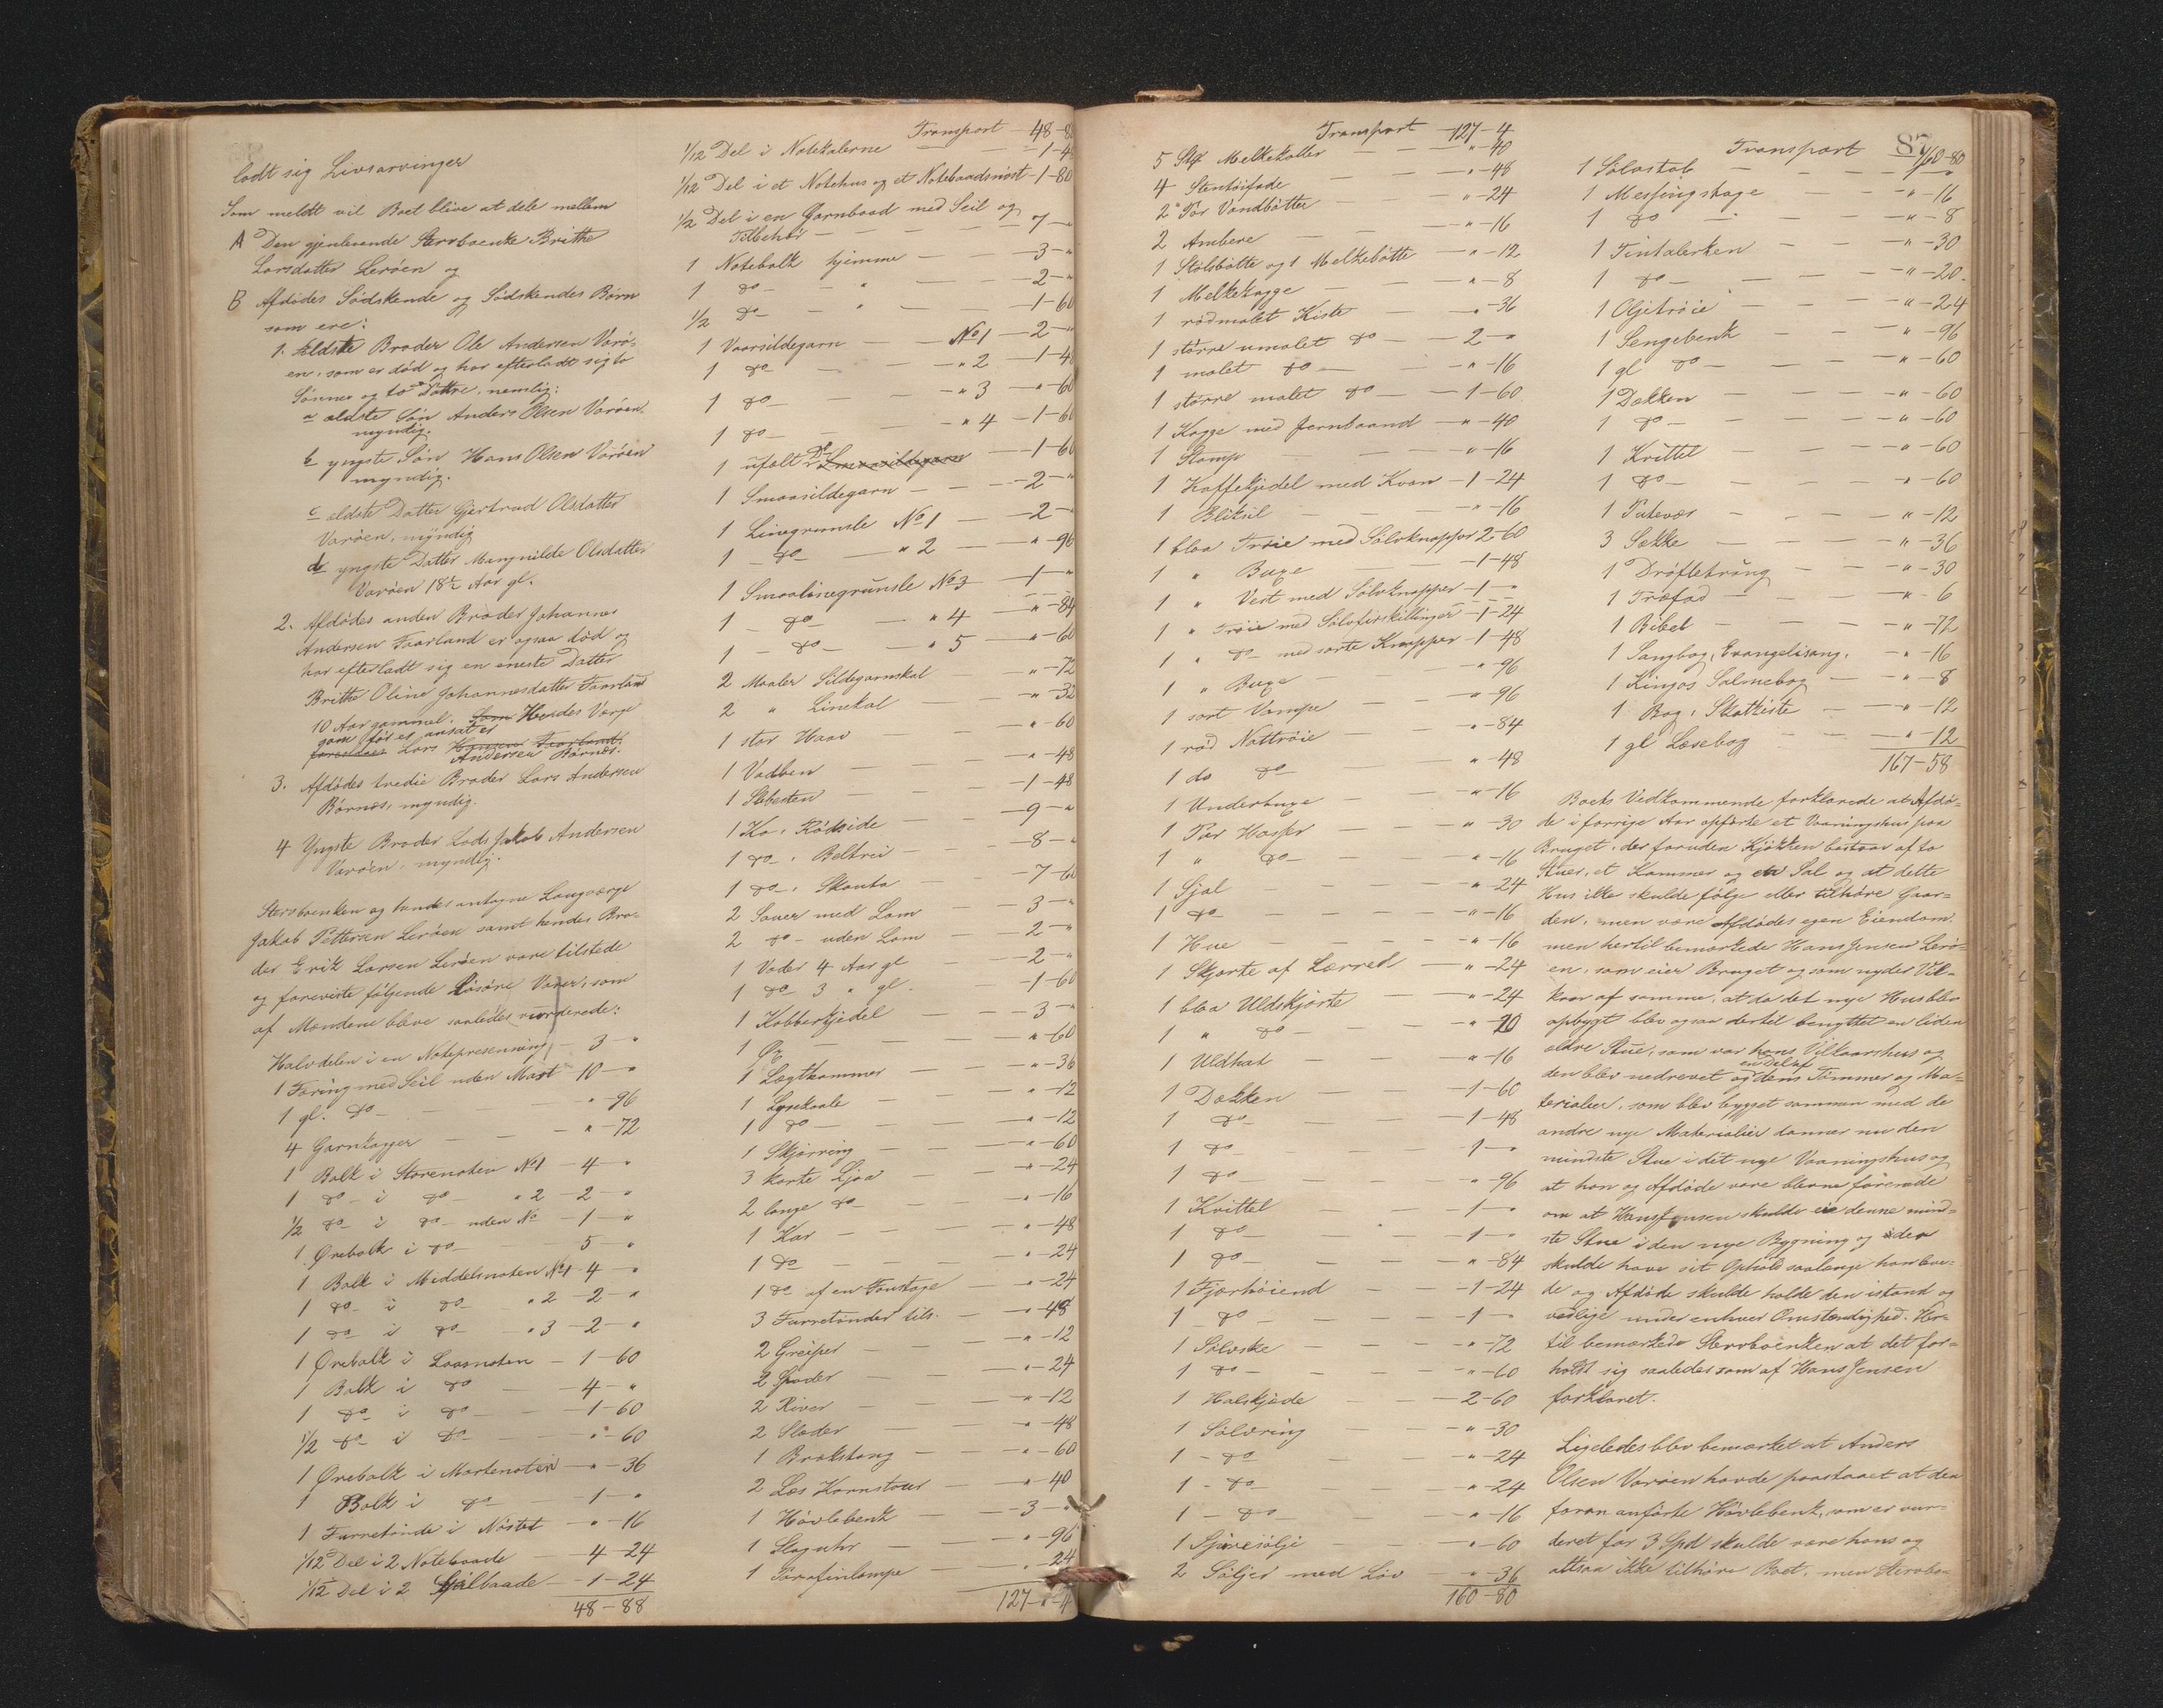 ladt sig Livsarvinger
Som meldt vil Boet blive at dele mellem
A Den gjenlevende Sterboenke Brithe
Larsdatter Lerøen og
B. Afdødes Södskende og Södskendes Børn
som ere:
1. Ældste Broder Ole Andersen Varö-
en, som er død og har efterladt sig to
Sønner og to Døttre, nemlig:
a ældste Søn Anders Olsen Varöen
myndig.
b yngste Søn Hans Olsen Varöen
myndig.
c ældste Datter Gjertrud Olsdatter
Varöen, myndig
d yngste Datter Magnilde Olsdatter
Varöen 18½ Aar gl.
2. Afdødes anden Broder Johannes
Andersen Faarland er ogsaa död og
har efterladt sig en eneste Datter
Brithe Oline Johannesdatter Faarland
10 Aar gammel. Som Hendes Værge
som før er ansat er
Lars Hansen Faarland.
Andersen Börnes.
3. Afdødes tredie Broder Lars Andersen
Børnes, myndig.
4 Yngste Broder Lods Jakob Andersen
Varöen, myndig.
Sterboenken og hendes antagne Laugværge
Jakob Pettersen Lerøen samt hendes Bro-
der Erik Larsen Lerøen vare tilstede
og foreviste følgende Løsøre Varer, som
af Mændene bleve saaledes vurderede:
Halvdelen i en Notepresenning - 3 - "
1 Færing med Seil uden Mast - 10 - "
1 gl. do - " - 96
4 Garnkagger - " - 72
1 Balk i Storenoten No 1 - 4 - "
1 do - i do - " 2 - 2 - "
1/2 do - i do - uden No - 1 - "
1 Ørebalk i do - 5 - "
1 Balk i Middelsnoten No 1 - 4 - "
1 do - i do " 2 - 2 - "
1 do - i do - " 3 - 2 - "
1 Ørebalk i Laasnoten - 1 - 60
1 Balk i do - 4 - "
1 do - i do - 1 - 60
1/2 do - i do - " - 60
1 Ørebalk i Mortenoten - " - 36
1 Balk i do - 1 - "
1 Furretønde i Nöstet - " - 16
1/12 Del i 2 Notebaade - 4 - 24
1/12 Del i 2 Sjølbaade - 1 - 24
48 - 88
Transport - 48 - 8
1/12 Del i Notekalerne - 1 - 4
1/12 Del i et Notehus og et Notebaadsnöst - 1 - 80
1/2 Del i en Garnbaad med Seil og
Tilbehör - 7 - "
1 Notebalk hjemme - 3 - "
1 do - " - 2 - "
1/2 do - " - 1 - 60
1 Vaarsildegarn - No 1 - 2 - "
1 do - " 2 - 1 - 4
1 do - " 3 - " - 60
1 do - " 4 - 1 - 60
1 ufælt do Smaasildegarn - 1 - 60
1 Smaasildegarn - 2 - "
1 Linegrunsle No 1 - 2 - "
1 - do - " 2 - " - 96
1 Smaalinegrunsle No 3 - 1 - "
1 - do - " 4 - " - 84
1 - do - " 5 - " - 60
2 Maaler Sildegarnskal - " - 72
2 " Linekal - " - 32
1 stor Haav - " - 60
1 Vadben - " - 48
1 Slibesten - 1 - 48
1 Ko, Rödside - 9 - "
1 do, Beltrei - 8 - "
1 do, Skauta - 7 - 60
2 Sauer med Lam - 3 - "
2 do - uden Lam - 2 - "
1 Væder 4 Aar gl - 2 - "
1 do 3 " gl. - 1 - 60
1 Kobberkjedel - 3 - "
1 Øx - " - 60
1 Lægthammer - " - 36
1 Lysekaale - " - 12
1 do - " - 12
1 Skjærring - " - 60
3 korte Ljaa - " - 24
2 lange do - " - 16
1 Kar - " - 48
1 do - " - 24
1 do af en Foustage - " - 24
3 Furretønder tils. - " - 48
2 Greiper - " - 12
2 Spader - " - 24
2 River - " - 12
2 Slæder - " - 48
1 Brakstang - " - 60
2 Læs Kornstaur - " - 40
1 Hövlebenk - 3 - "
1 Slaguhr - " - 96
1 Parafinlampe - " - 24
127 - " - 4
Transport - 127 - 4
5 Stk Melkekoller - " - 40
4 Stentöifade - " - 48
2 Par Vandbøtter - " - 24
2 Ambere - " - 16
1 Stölsbøtte og 1 Melkebøtte - " - 12
1 Melkekagge - " - 8
1 rödmalet Kiste - " - 36
1 større umalet do - 2 - "
1 malet do - " - 16
1 større malet do - 1 - 60
1 Kagge med Jernbaand - " - 40
1 Stamp - " - 16
1 Kaffekjedel med Kran - 1 - 24
1 Bliksil - " - 16
1 blaa Trøie med Sölvknapper 2 - 60
1 " Buxe - 1 - 48
1 " Vest med Sölvknapper - 1 - "
1 " Tröie med Sölvtiskillinger - 1 - 24
1 " do - med sorte Knapper - 1 - 48
1 " Buxe - " - 96
1 sort Vampe - " - 96
1 röd Nattröie - " - 84
1 do do - " - 48
1 Underbuxe - " - 16
1 Par Hoser - " - 30
1 " do - " - 16
1 Sjal - " - 24
1 do - " - 16
1 Hue - " - 16
1 Skjorte af Lærred - " - 24
1 blaa Uldskjorte - " - 24
1 " do - " - 20
1 Uldhat - " - 16
1 Dækken - 1 - 60
1 do - 1 - 48
1 do - 1 - "
1 do - " - 96
1 Kvittel - 1 - "
1 do - 1 - "
1 do - " - 84
1 Fjærhöiend - 1 - 24
1 - do - 1 - "
1 Sölvske - " - 72
1 do - " - 60
1 Halskjæde - 2 - 60
1 Sölvring - " - 30
1 - do - " - 24
1 - do - " - 24
1 - do - " - 16
1 Spiresölje - " - 60
2 Söljer med Löv - " - 36
160 - 80
87
Transport 160 - 80
1 Sölvstab - " - "
1 Messingstage - " - 16
1 do - " - 8
1 Tintalerken - " - 30
1 do - " - 20
1 Oljetröie - " - 24
1 Sengebenk - " - 96
1 gl do - " - 60
1 Dækken - " - 60
1 do - " - 60
1 Kvittel - " - 60
1 do - " - 60
1 Putevær - " - 12
3 Sække - " - 36
1 Dröfletraug - " - 30
1 Træfad - " - 6
1 Bibel - " - 72
1 Sangbog, Evangelisang. - " - 16
1 Kingos Salmebog - " - 8
1 Bog, Skatkiste - " - 12
1 gl Læsebog - " - 12
167 - 58
Boets Vedkommende forklarede at Afdø-
de i forrige Aar opførte et Vaaningshus paa
Bruget, der foruden Kjøkken bestaar af to
Stuer, et Kammer og en Sal og at dette
Hus ikke skulde følge eller tilhøre Gaar-
den, men være Afdødes egen Eiendom
men hertil bemærkede Hans Jensen Lerø-
en, som eier Bruget og som nyder Vil-
kaar af samme, at da det nye Hus blev
opbygt blev ogsaa dertil benyttet en liden
ældre Stue, som var hans Vilkaarshus og
en Del af
den blev nedrevet og dens Tömmer og Ma-
terialier, som blev bygget sammen med de
andre nye Materialier danner nu den
mindste Stue i det nye Vaaningshus og
at han og Afdøde vare blevne forenede
om at Hans Jensen skulde eie denne mind-
ste Stue i den nye Bygning og i den
skulde have sit Ophold saalænge han leve-
de og Afdøde skulde holde den istand og
vedlige under enhver Omstændighed. Her-
til bemærkede Sterboenken at det for-
holdt sig saaledes som af Hans Jensen
forklaret.
Ligeledes blev bemærket at Anders
Olsen Varöen havde paastaaet at den
foran anförte Hövlebenk, som er vur-
deret for 3 Spd skulde være hans og
altsaa ikke tilhøre Boet, men Sterbo-